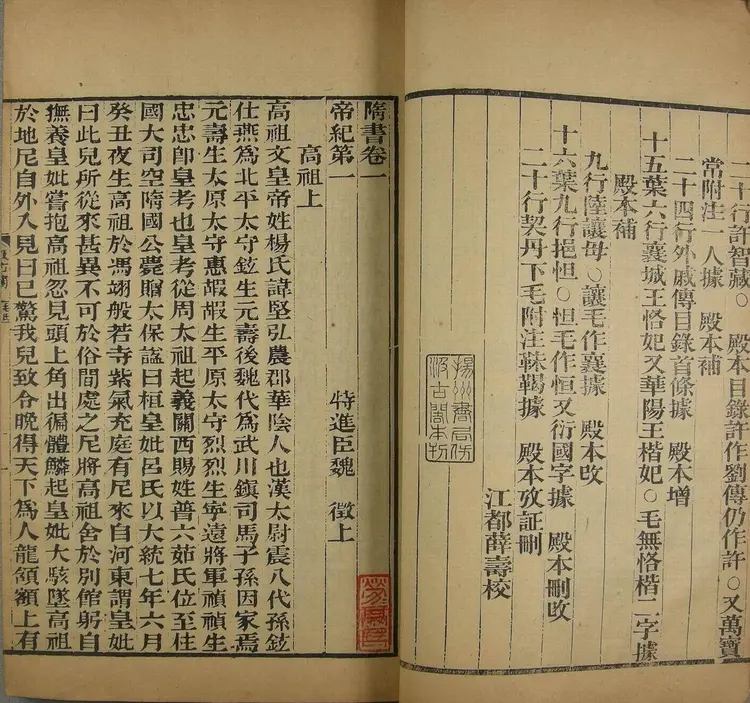 二十行許智藏○殿本目錄許作劉傳仍作許○又萬寶
常附注一人據 殿本補
二十四行外戚傳目錄首條據 殿本增
十五葉六行襄城王恪妃又華陽王楷妃○毛無恪楷二字據
殿本補
九行陸讓母○讓毛作襄據 殿本改
十六葉九行挹怛○怛毛作恒又衍國字據 殿本刪改
二十行契丹下毛附注靺鞨據 殿本攷証刪
江都薛壽校
揚州書局仿
汲古閣本刊
隋書卷一
帝紀第一 特進臣魏 徵上
高祖上
高祖文皇帝姓楊氏諱堅弘農郡華陰人也漢太尉震八代孫鉉
仕燕爲北平太守鉉生元壽後魏代爲武川鎮司馬子孫因家焉
元壽生太原太守惠嘏嘏生平原太守烈烈生寧遠將軍禎禎生
忠忠卽皇考也皇考從周太祖起義關西賜姓普六茹氏位至柱
國大司空隋國公薨贈太保諡曰桓皇妣呂氏以大統七年六月
癸丑夜生高祖於馮翊般若寺紫氣充庭有尼來自河東謂皇妣
曰此兒所從來甚異不可於俗間處之尼將高祖舍於別館躬自
撫養皇妣嘗抱高祖忽見頭上角出徧體鱗起皇妣大駭墜高祖
於地尼自外入見曰已驚我兒致令晚得天下爲人龍頷額上有